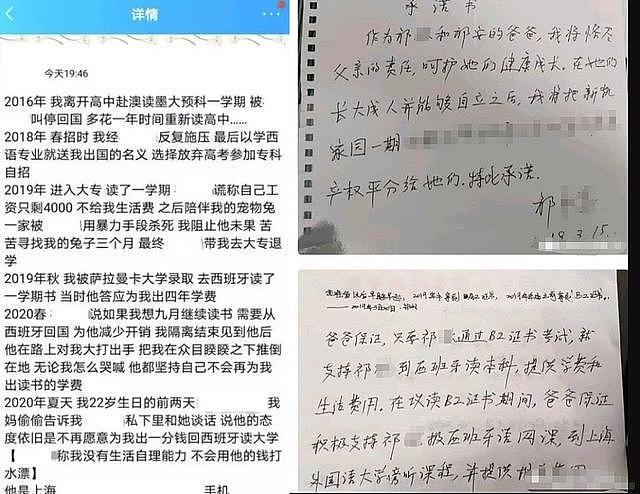 详情
今天19:46
2016年 我离开高中赴澳读墨大预科一学期 被
叫停回国 多花一年时间重新读高中……
2018年 春招时 我经 反复施压 最后以学西
语专业就送我出国的名义 选择放弃高考参加专科
自招
2019年 进入大专 读了一学期 谎称自己工
资只剩4000 不给我生活费 之后陪伴我的宠物兔
一家被 用暴力手段杀死 我阻止他未果 苦
苦寻找我的兔子三个月 最终 带我去大专退
学
2019年秋 我被萨拉曼卡大学录取 去西班牙读了
一学期书 当时他答应为我出四年学费
2020春 说如果我想九月继续读书 需要从
西班牙回国 为他减少开销 我隔离结束见到他后
他在路上对我大打出手 把我在众目睽睽之下推倒
在地 无论我怎么哭喊 他都坚持自己不会再为我
出读书的学费
2020年夏天 我22岁生日的前两天 我
妈偷偷告诉我 私下里和她谈话 说他的态
度依旧是不再愿意为我出一分钱回西班牙读大学
【 称我没有生活自理能力 不会用他的钱打
水漂】
他是上海 手机
承诺书
作为祁 和祁安的爸爸,我将恪尽
父亲的责任,呵护她们健康成长。在她们
长大成人并能够自立之后,我将把新凯
家园一期
产权平分给她们。特此承诺。
祁
19.3.15.
爸爸保证,只要祁 通过B2证书考试,就
支持祁 到西班牙读本科,提供学费和
生活费用。在攻读B2证书期间,爸爸保证
积极支持祁 报西班牙语网课,到上海
外国语大学旁听课程,并提供